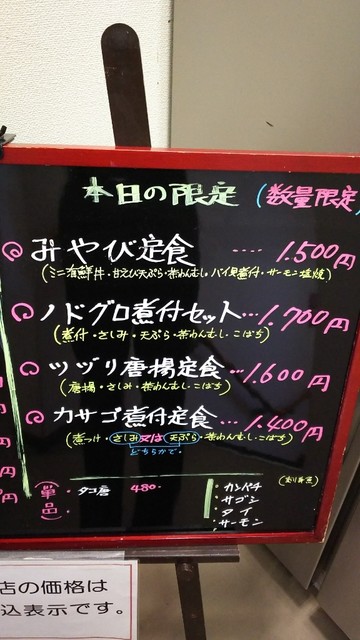 本日の限定 (数量限定
みやび定食 ···· 1.500円
(ミニ海鮮丼・甘えび天ぷら・茶わんむし・バイ貝煮付・サーモン塩焼)
ノドグロ煮付セット··· 1.700円
(煮付・さしみ・天ぷら・茶わんむし・こばち)
ツヅリ唐揚定食 ··· 1.600円
(唐揚・さしみ・茶わんむし・こばち)
カサゴ煮付定食 ··· 1.400円
(煮つけ・さしみ又は天ぷら・茶わんむし・こばち)
どちらかで・
(単品) タコ唐 480-
カンパチ
サゴシ
タイ
サーモン
店の価格は
込表示です。